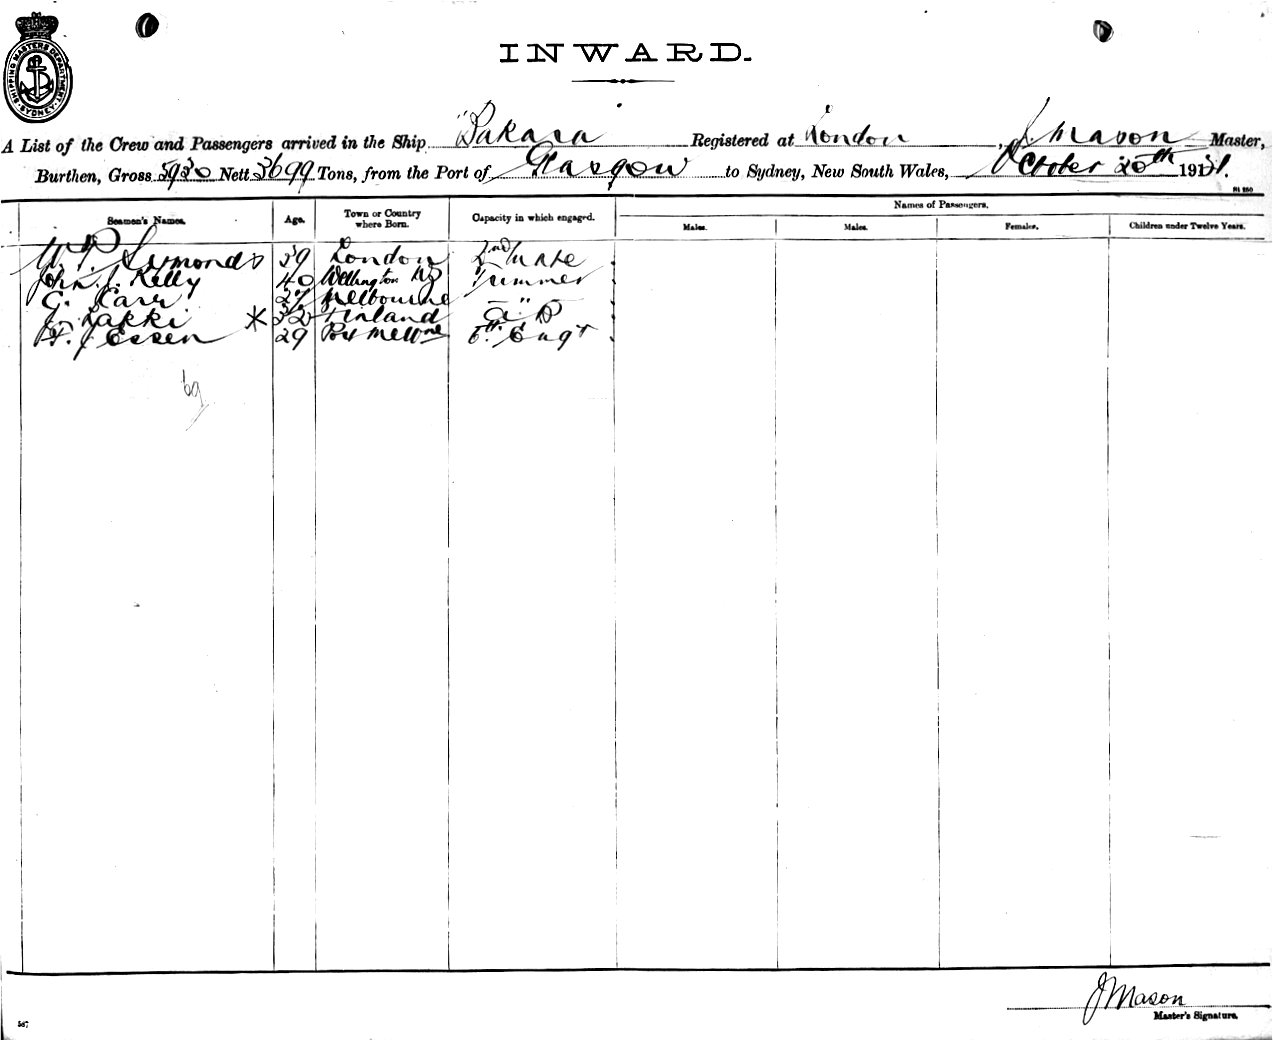 SHIPPING MASTERS DEPARTMENT SYDNEY
INWARD.
A List of the Crew and Passengers arrived in the Ship "Bakara" Registered at London, J. Mason Master,
Burthen, Gross 5930 Nett 3699 Tons, from the Port of Glasgow to Sydney, New South Wales, October 20th 1921.
Names of Passengers.
Seamen's Names. Age. Town or Country where Born. Capacity in which engaged. Males. Males. Females. Children under Twelve Years.
W. P. Symonds 39 London 2nd Mate
John J. Kelly 40 Wellington NZ Trimmer
G. Carr 27 Melbourne — " —
J. Lakki X 32 Finland A.B
F. J Essen 29 Port Melbne 5th Engr
69
J Mason
Master's Signature.
567